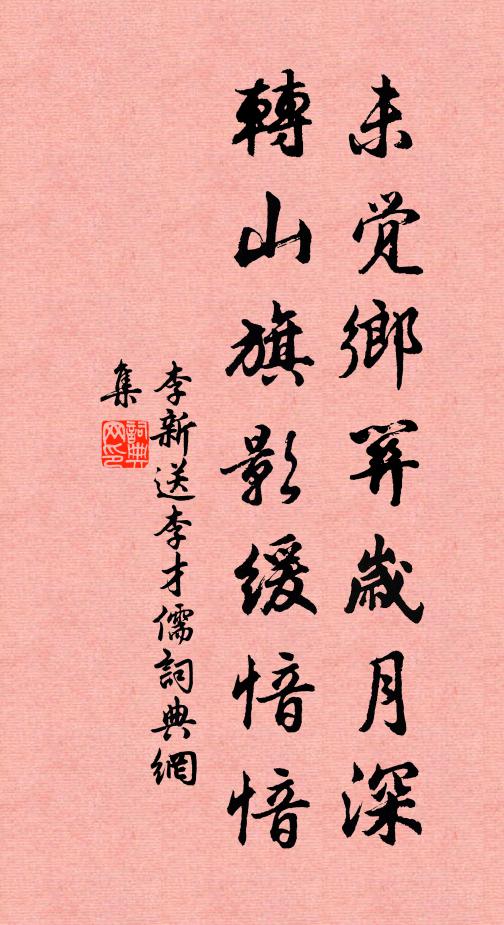 未觉鄉關歲月深
轉山旗影緩愔愔
李新送李才儒詞典網
集
詞典
网印